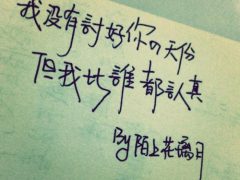 我没有討好你の天份
但我比誰都認真
By陌上花璃月